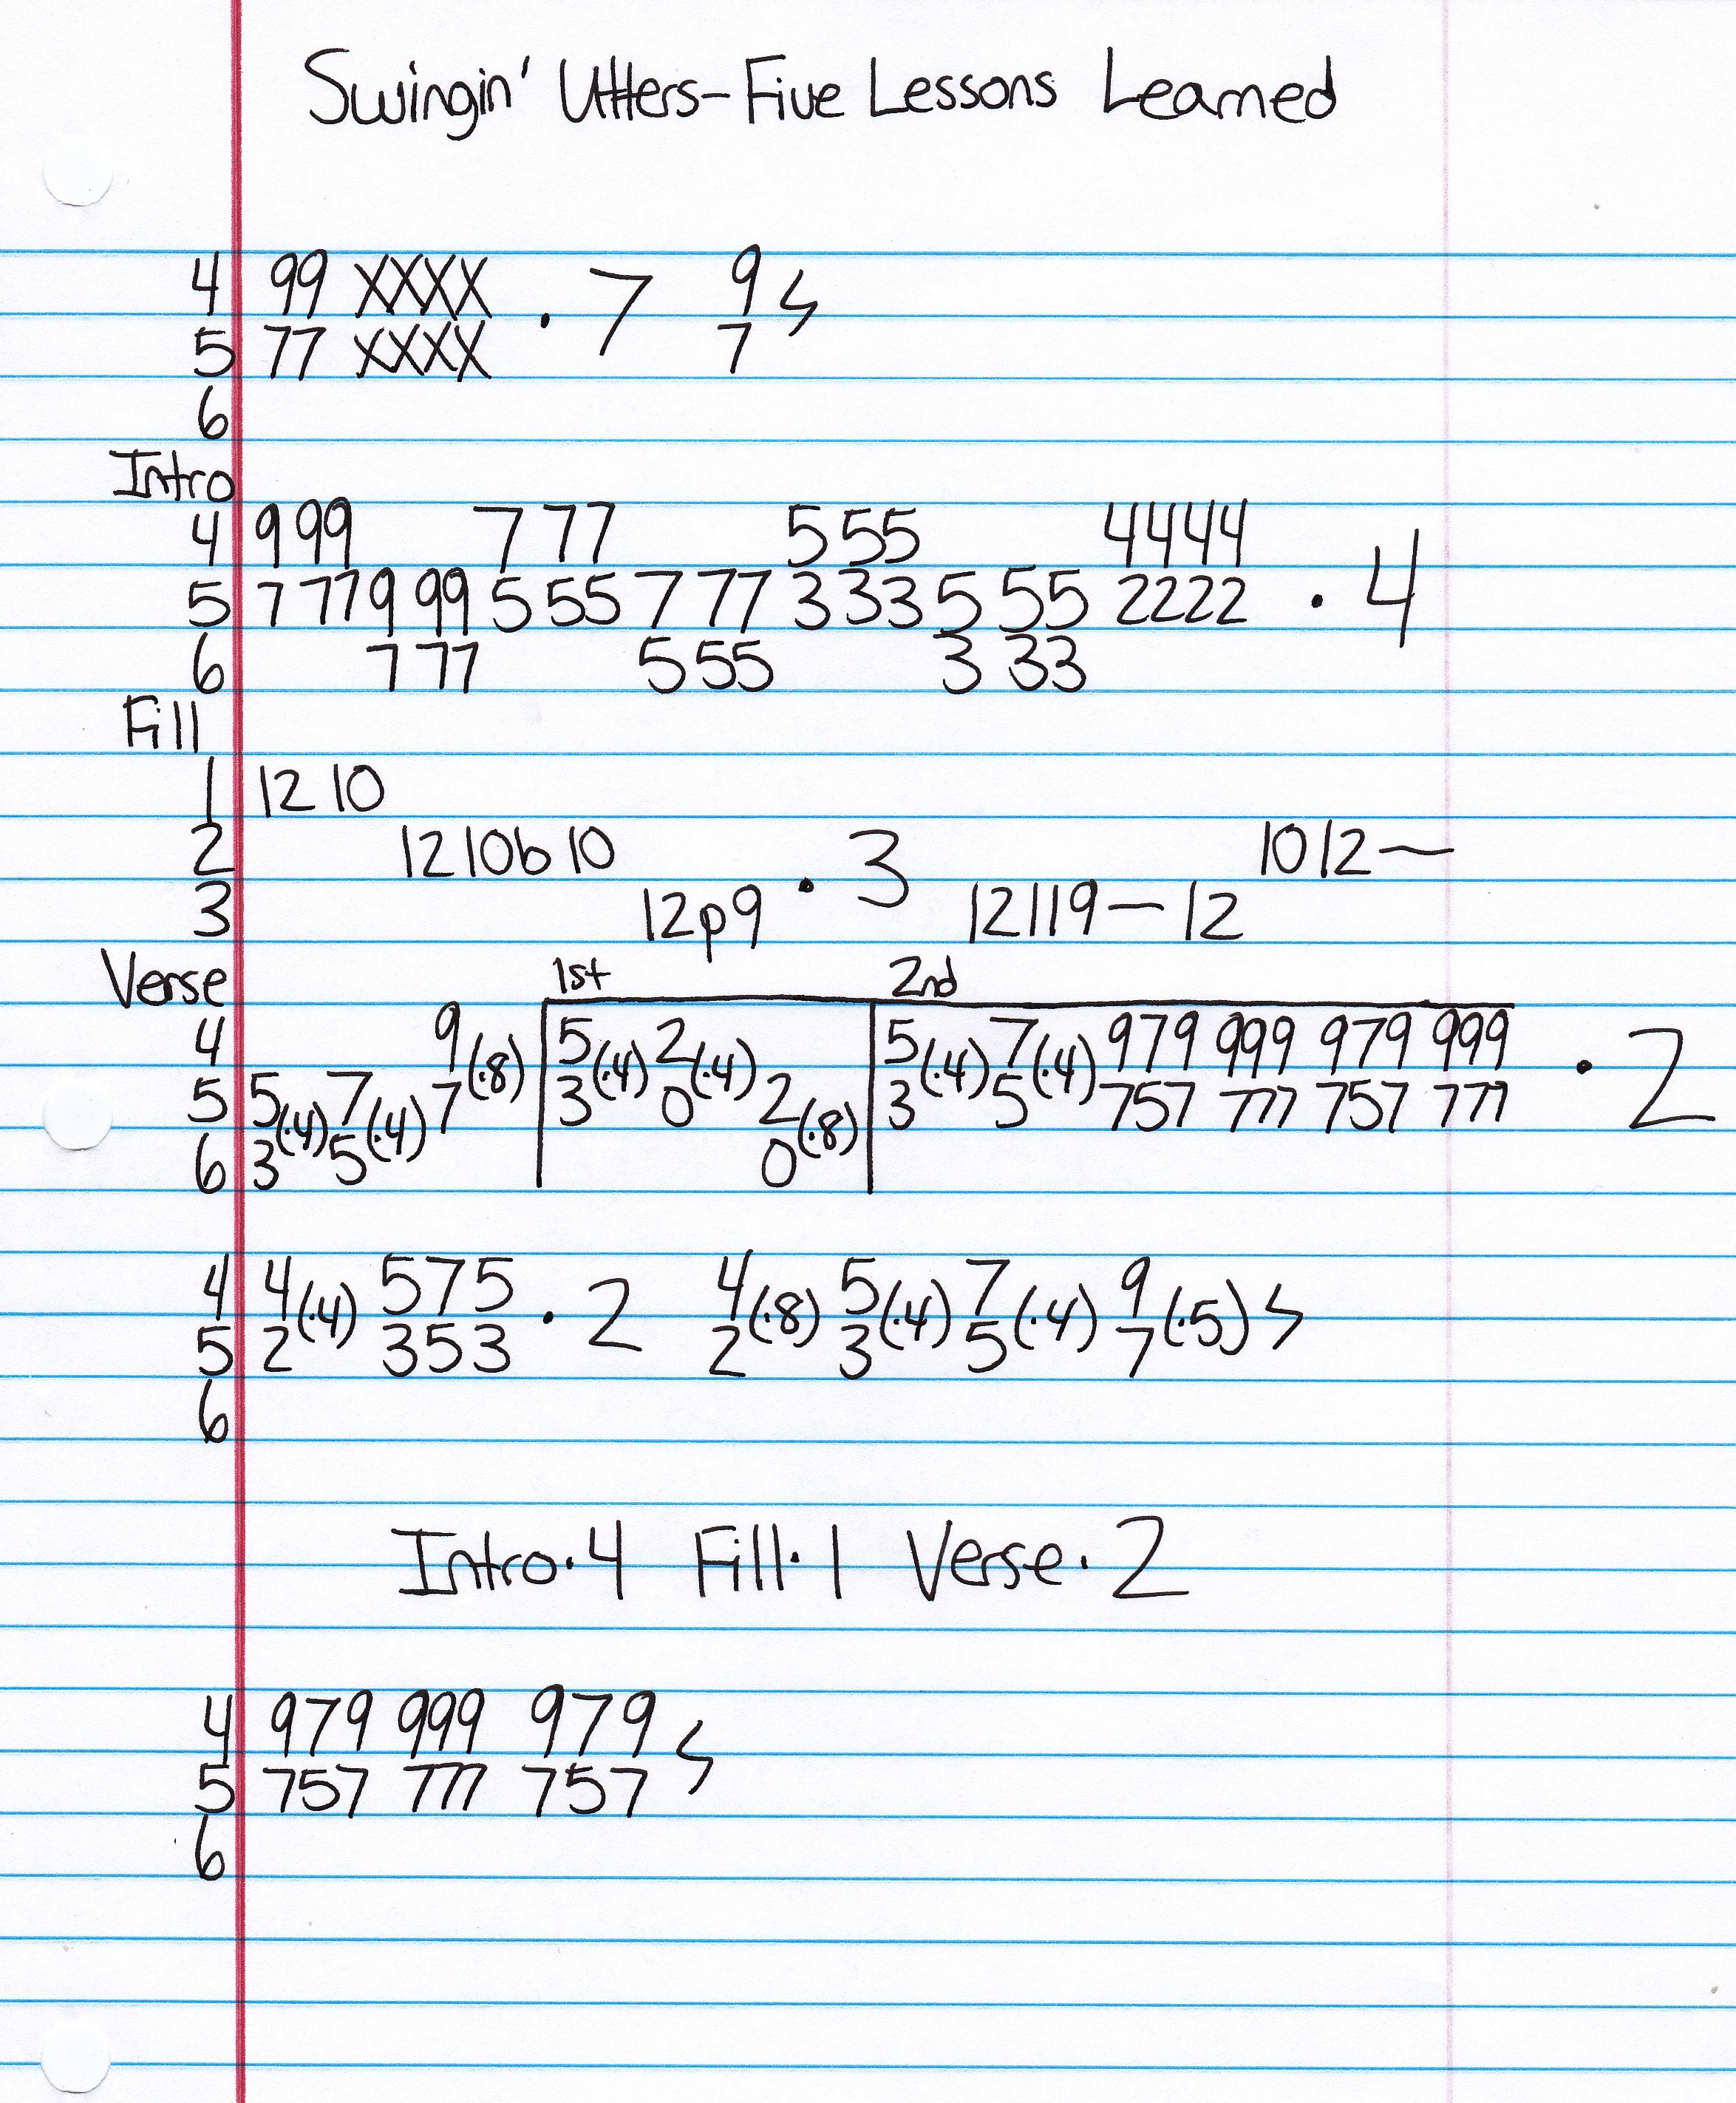 Swingin' Utters-Five Lessons Learned
4 99 XXXX · 7 9 ϟ
5 77 XXXX 7
6
Intro
4 9 99 7 77 5 55 4444 · 4
5 7 77 9 99 5 55 7 77 3 33 5 55 2222
6 7 77 5 55 3 33
Fill
1 12 10
2 12 10b 10 · 3 10 12~
3 12p9 12 11 9 — 12
Verse 1st 2nd
4 9(·8) 5(·4) 2(·4) 5(·4) 7(·4) 979 999 979 999 · 2
5 5(·4) 7(·4) 7 3 0 2(·8) 3 5 757 777 757 777
6 3 5 0
4 4(·4) 575 · 2 4(·8) 5(·4) 7(·4) 9(·5) ϟ
5 2 353 2 3 5 7
6
Intro·4 Fill·1 Verse·2
4 979 999 979 ϟ
5 757 777 757
6